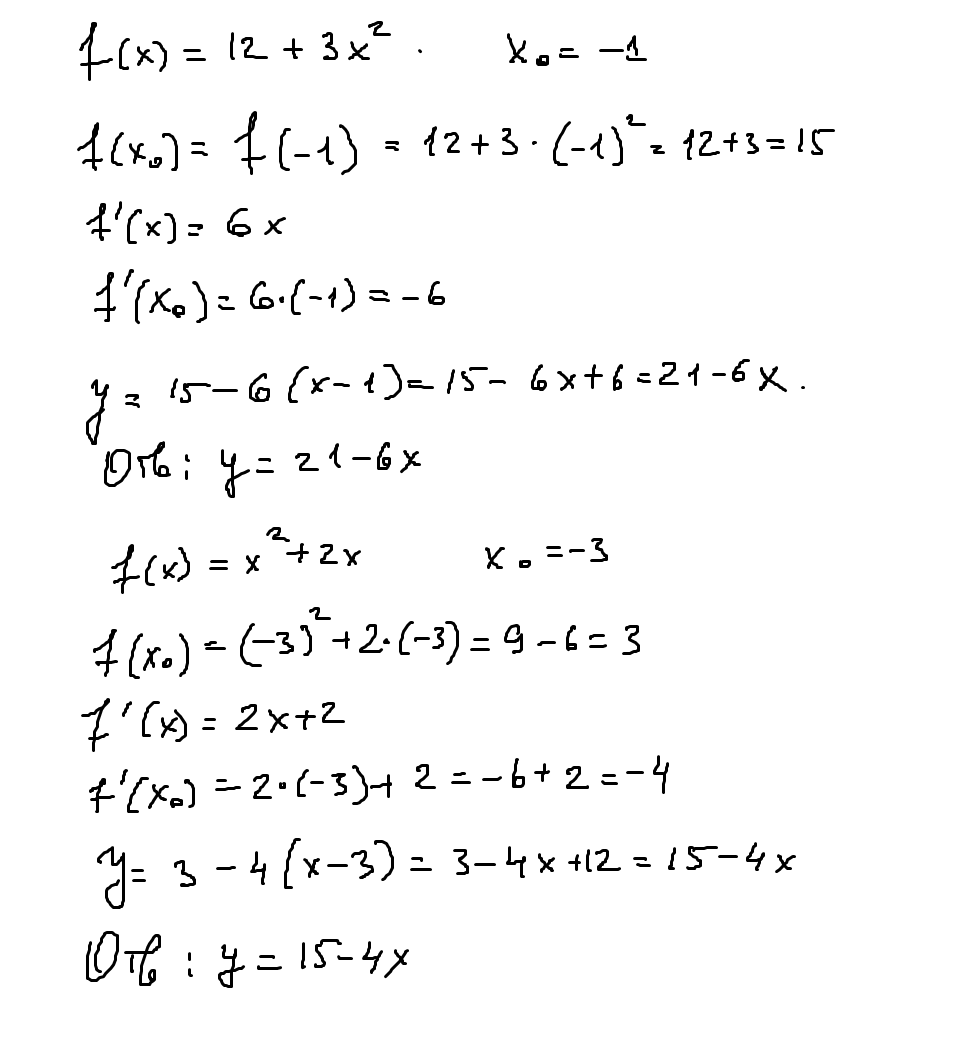 f(x) = 12 + 3x². x₀ = -1
f(x₀) = f(-1) = 12+3·(-1)² = 12+3=15
f'(x) = 6x
f'(x₀) = 6·(-1) = -6
y = 15-6(x-1) = 15- 6x+6=21-6x.
Отв: y = 21-6x
f(x) = x²+2x x₀ = -3
f(x₀) = (-3)²+2·(-3) = 9-6=3
f'(x) = 2x+2
f'(x₀) = 2·(-3)+2 = -6+2 = -4
y = 3-4(x-3) = 3-4x+12 = 15-4x
Отв: y = 15-4x